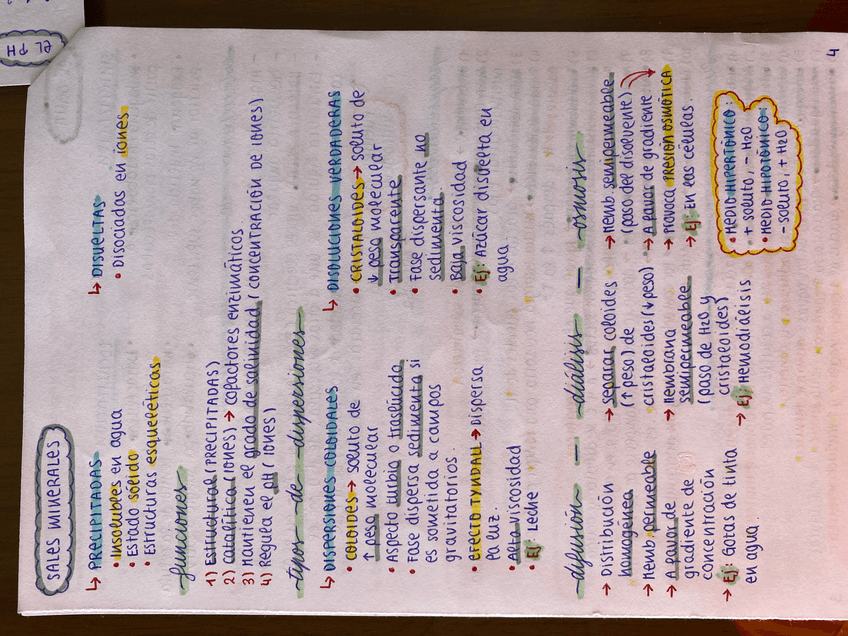 EL pH
SALES MINERALES
↳ PRECIPITADAS
• Insolubles en agua
• Estado sólido
• Estructuras esqueléticas
↳ DISUELTAS
• Disociadas en iones
funciones
1) Estructural (PRECIPITADAS)
2) catalítica (IONES) → cofactores enzimáticos
3) Mantienen el grado de salinidad (concentración de iones)
4) Regula el pH (IONES)
tipos - de - dispersiones
↳ DISPERSIONES COLOIDALES
• COLOIDES → soluto de
↑ peso molecular
• Aspecto turbio o traslúcido
• Fase dispersa sedimenta si
es sometida a campos
gravitatorios.
• EFECTO TYNDALL → Dispersa
la luz.
• Alta viscosidad
Ej: Leche
↳ DISOLUCIONES VERDADERAS
• CRISTALOIDES → soluto de
↓ peso molecular
• Transparente
• Fase dispersante no
sedimenta
• Baja viscosidad
• Ej: Azúcar disuelta en
agua
difusión — diálisis — osmosis
→ Distribución
homogénea
→ Memb. permeable
→ A favor de
gradiente de
concentración
→ Ej: Gotas de tinta
en agua.
→ Separar coloides
(↑ peso) de
cristaloides (↓ peso)
→ Membrana
semipermeable
(paso de H2O y
cristaloides)
→ Ej: Hemodiálisis
→ Memb semipermeable
(paso del disolvente)
→ A favor de gradiente
→ Provoca PRESIÓN OSMÓTICA
→ Ej: En las células.
• MEDIO HIPERTÓNICO:
+ soluto, - H2O
• MEDIO HIPOTÓNICO:
- soluto, + H2O
4